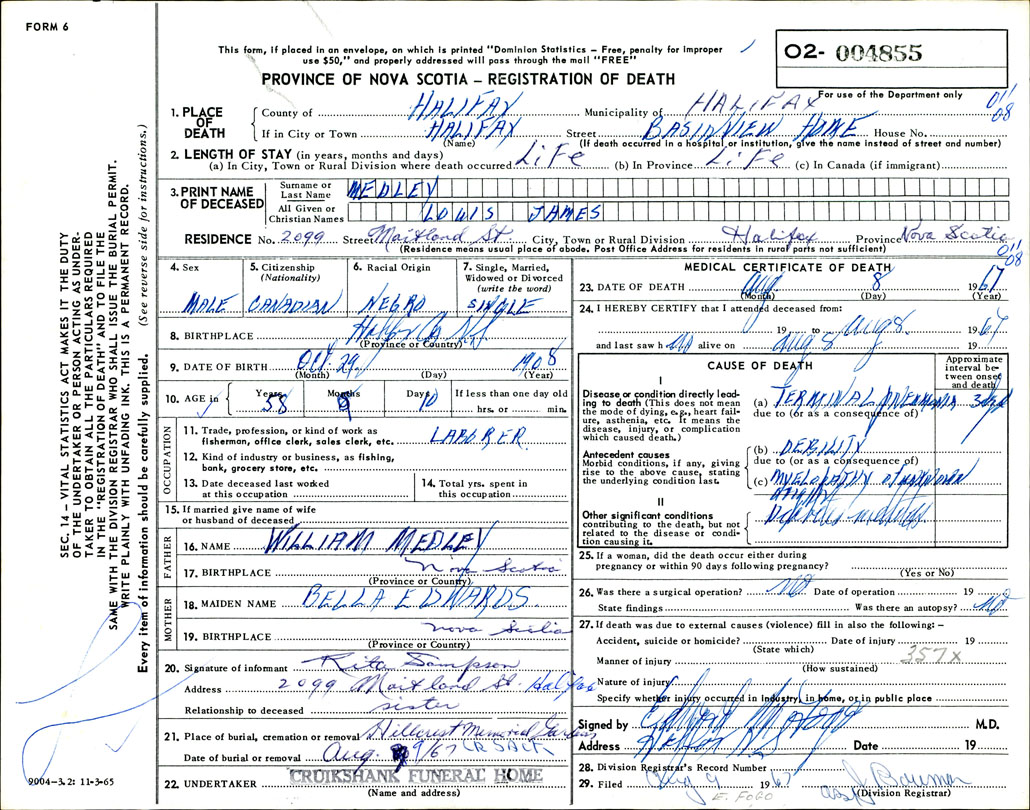 FORM 6
This form, if placed in an envelope, on which is printed "Dominion Statistics – Free, penalty for improper
use $50," and properly addressed will pass through the mail "FREE"
PROVINCE OF NOVA SCOTIA – REGISTRATION OF DEATH
O2- 004855
For use of the Department only
011
08
1. PLACE OF DEATH
County of HALIFAX Municipality of HALIFAX
If in City or Town HALIFAX Street BASINVIEW HOME House No.
(Name) (If death occurred in a hospital or institution, give the name instead of street and number)
2. LENGTH OF STAY (in years, months and days)
(a) In City, Town or Rural Division where death occurred LIFE (b) In Province LIFE (c) In Canada (if immigrant)
3. PRINT NAME OF DECEASED
Surname or Last Name MEDLEY
All Given or Christian Names LOUIS JAMES
RESIDENCE No. 2099 Street Maitland St. City, Town or Rural Division Halifax Province Nova Scotia
(Residence means usual place of abode. Post Office Address for residents in rural parts not sufficient)
011
08
4. Sex MALE
5. Citizenship (Nationality) CANADIAN
6. Racial Origin NEGRO
7. Single, Married, Widowed or Divorced (write the word) SINGLE
8. BIRTHPLACE Halifax Co N.S.
(Province or Country)
9. DATE OF BIRTH OCT. 29, 1908
(Month) (Day) (Year)
10. AGE in Years 58 Months 9 Days 10 If less than one day old hrs. or min.
OCCUPATION
11. Trade, profession, or kind of work as fisherman, office clerk, sales clerk, etc. LABORER
12. Kind of industry or business, as fishing, bank, grocery store, etc.
13. Date deceased last worked at this occupation
14. Total yrs. spent in this occupation
15. If married give name of wife or husband of deceased
FATHER
16. NAME WILLIAM MEDLEY
17. BIRTHPLACE Nova Scotia
(Province or Country)
MOTHER
18. MAIDEN NAME BELLA EDWARDS
19. BIRTHPLACE Nova Scotia
(Province or Country)
20. Signature of informant Rita Sampson
Address 2099 Maitland St. Halifax
Relationship to deceased sister
21. Place of burial, cremation or removal Hillcrest Memorial Gardens
Date of burial or removal Aug. 9/67
22. UNDERTAKER CRUIKSHANK FUNERAL HOME
(Name and address)
MEDICAL CERTIFICATE OF DEATH
23. DATE OF DEATH Aug 8 1967
(Month) (Day) (Year)
24. I HEREBY CERTIFY that I attended deceased from:
19 to Aug 8 1967
and last saw h alive on Aug 8 19
CAUSE OF DEATH
Approximate interval between onset and death
I
Disease or condition directly leading to death (This does not mean the mode of dying, e.g., heart failure, asthenia, etc. It means the disease, injury, or complication which caused death.)
(a) TERMINAL PNEUMONIA
due to (or as a consequence of)
Antecedent causes
Morbid conditions, if any, giving rise to the above cause, stating the underlying condition last.
(b) DEBILITY
due to (or as a consequence of)
(c) MYELOPATHY of UNKNOWN
origin
II
Other significant conditions contributing to the death, but not related to the disease or condition causing it.
Diabetes mellitus
25. If a woman, did the death occur either during pregnancy or within 90 days following pregnancy?
(Yes or No)
26. Was there a surgical operation? NO Date of operation 19
State findings Was there an autopsy? NO
27. If death was due to external causes (violence) fill in also the following: –
Accident, suicide or homicide? Date of injury 19
(State which)
357X
Manner of injury
(How sustained)
Nature of injury
Specify whether injury occurred in industry, in home, or in public place
Signed by M.D.
Address Date 19
28. Division Registrar's Record Number
29. Filed Aug 9 1967
(Division Registrar)
E. FOGO
SEC. 14 – VITAL STATISTICS ACT MAKES IT THE DUTY
OF THE UNDERTAKER OR PERSON ACTING AS UNDER-
TAKER TO OBTAIN ALL THE PARTICULARS REQUIRED
IN THE "REGISTRATION OF DEATH" AND TO FILE THE
SAME WITH THE DIVISION REGISTRAR WHO SHALL ISSUE THE BURIAL PERMIT.
WRITE PLAINLY WITH UNFADING INK. THIS IS A PERMANENT RECORD.
Every item of information should be carefully supplied. (See reverse side for instructions.)
9004-3.2: 11-3-65